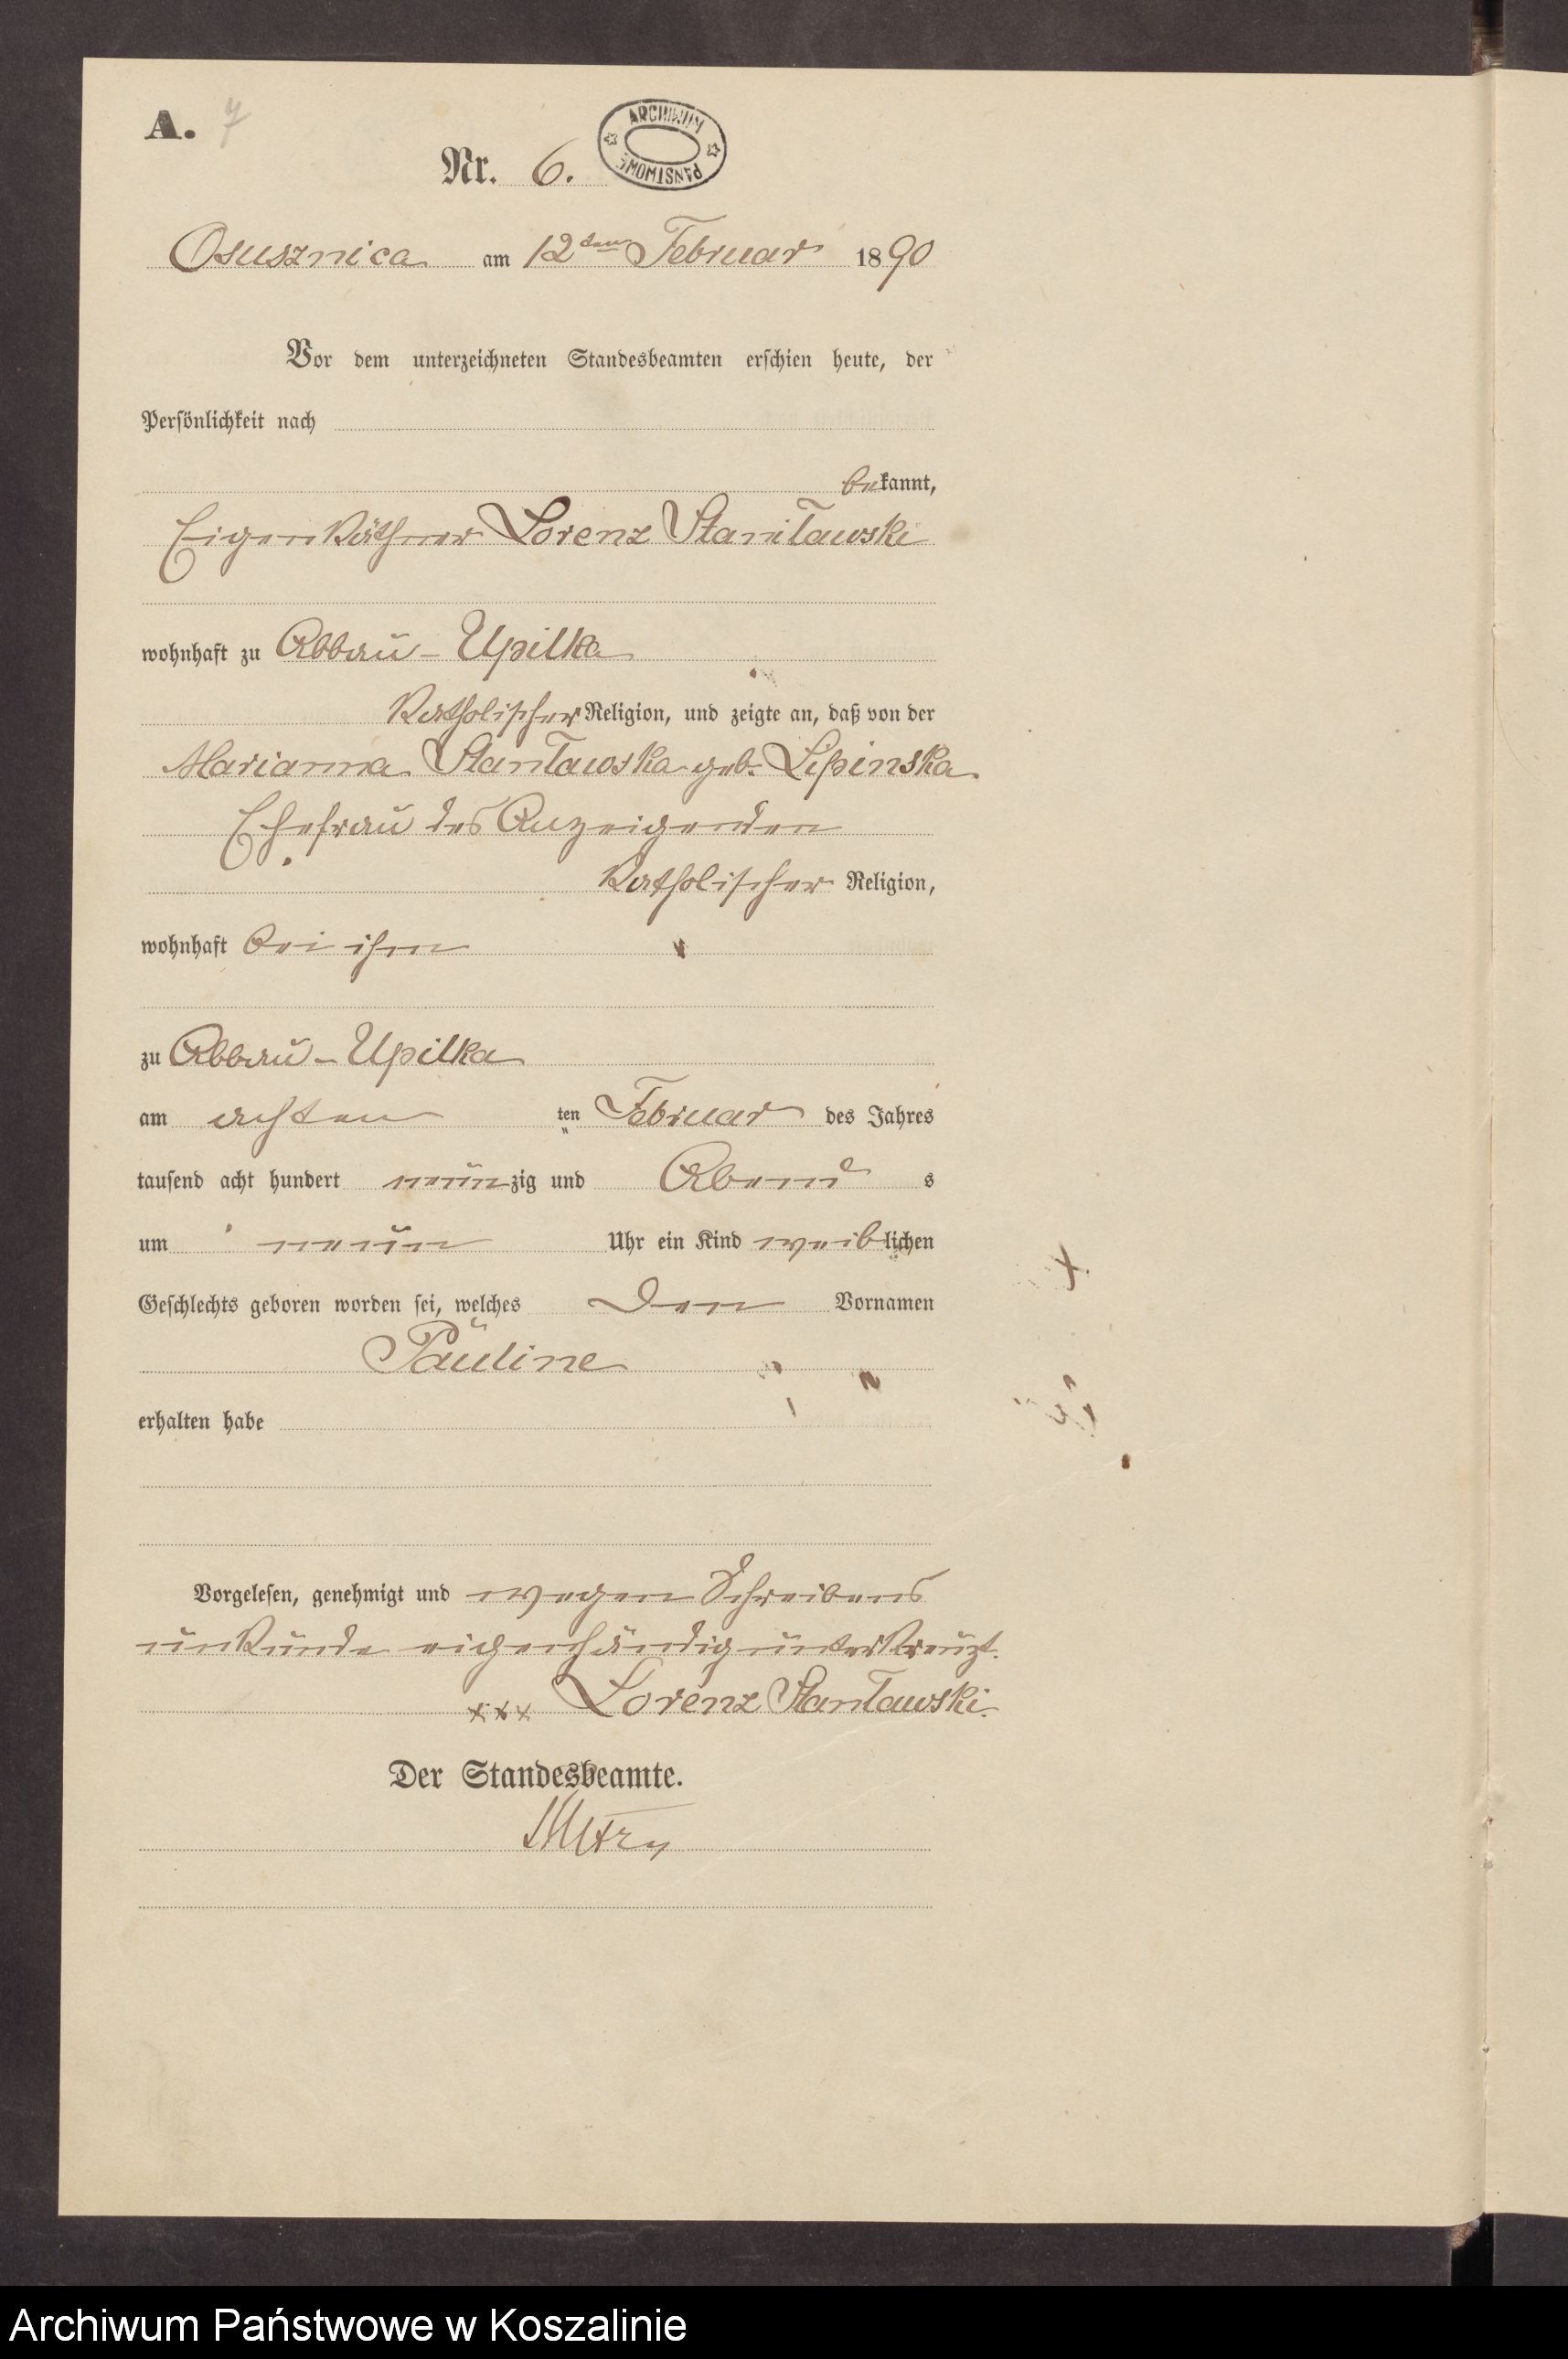 A. 7
ARCHIWUM PAŃSTWOWE
Nr. 6.
Osusznica am 12ten Februar 1890
Vor dem unterzeichneten Standesbeamten erschien heute, der
Persönlichkeit nach
bekannt,
Eigenkäthner Lorenz Stanisławski
wohnhaft zu Abbau-Upilka
katholischer Religion, und zeigte an, daß von der
Marianna Stanławska geb. Lipinska
Ehefrau des Anzeigenden
katholischer Religion,
wohnhaft bei ihm
zu Abbau-Upilka
am achten ten Februar des Jahres
tausend acht hundert neunzig und Abend s
um neun Uhr ein Kind weiblichen
Geschlechts geboren worden sei, welches den Vornamen
Pauline
erhalten habe
Vorgelesen, genehmigt und wegen Schreibens
unkunde eigenhändig unterkreuzt.
xxx Lorenz Stanławski.
Der Standesbeamte.
Archiwum Państwowe w Koszalinie